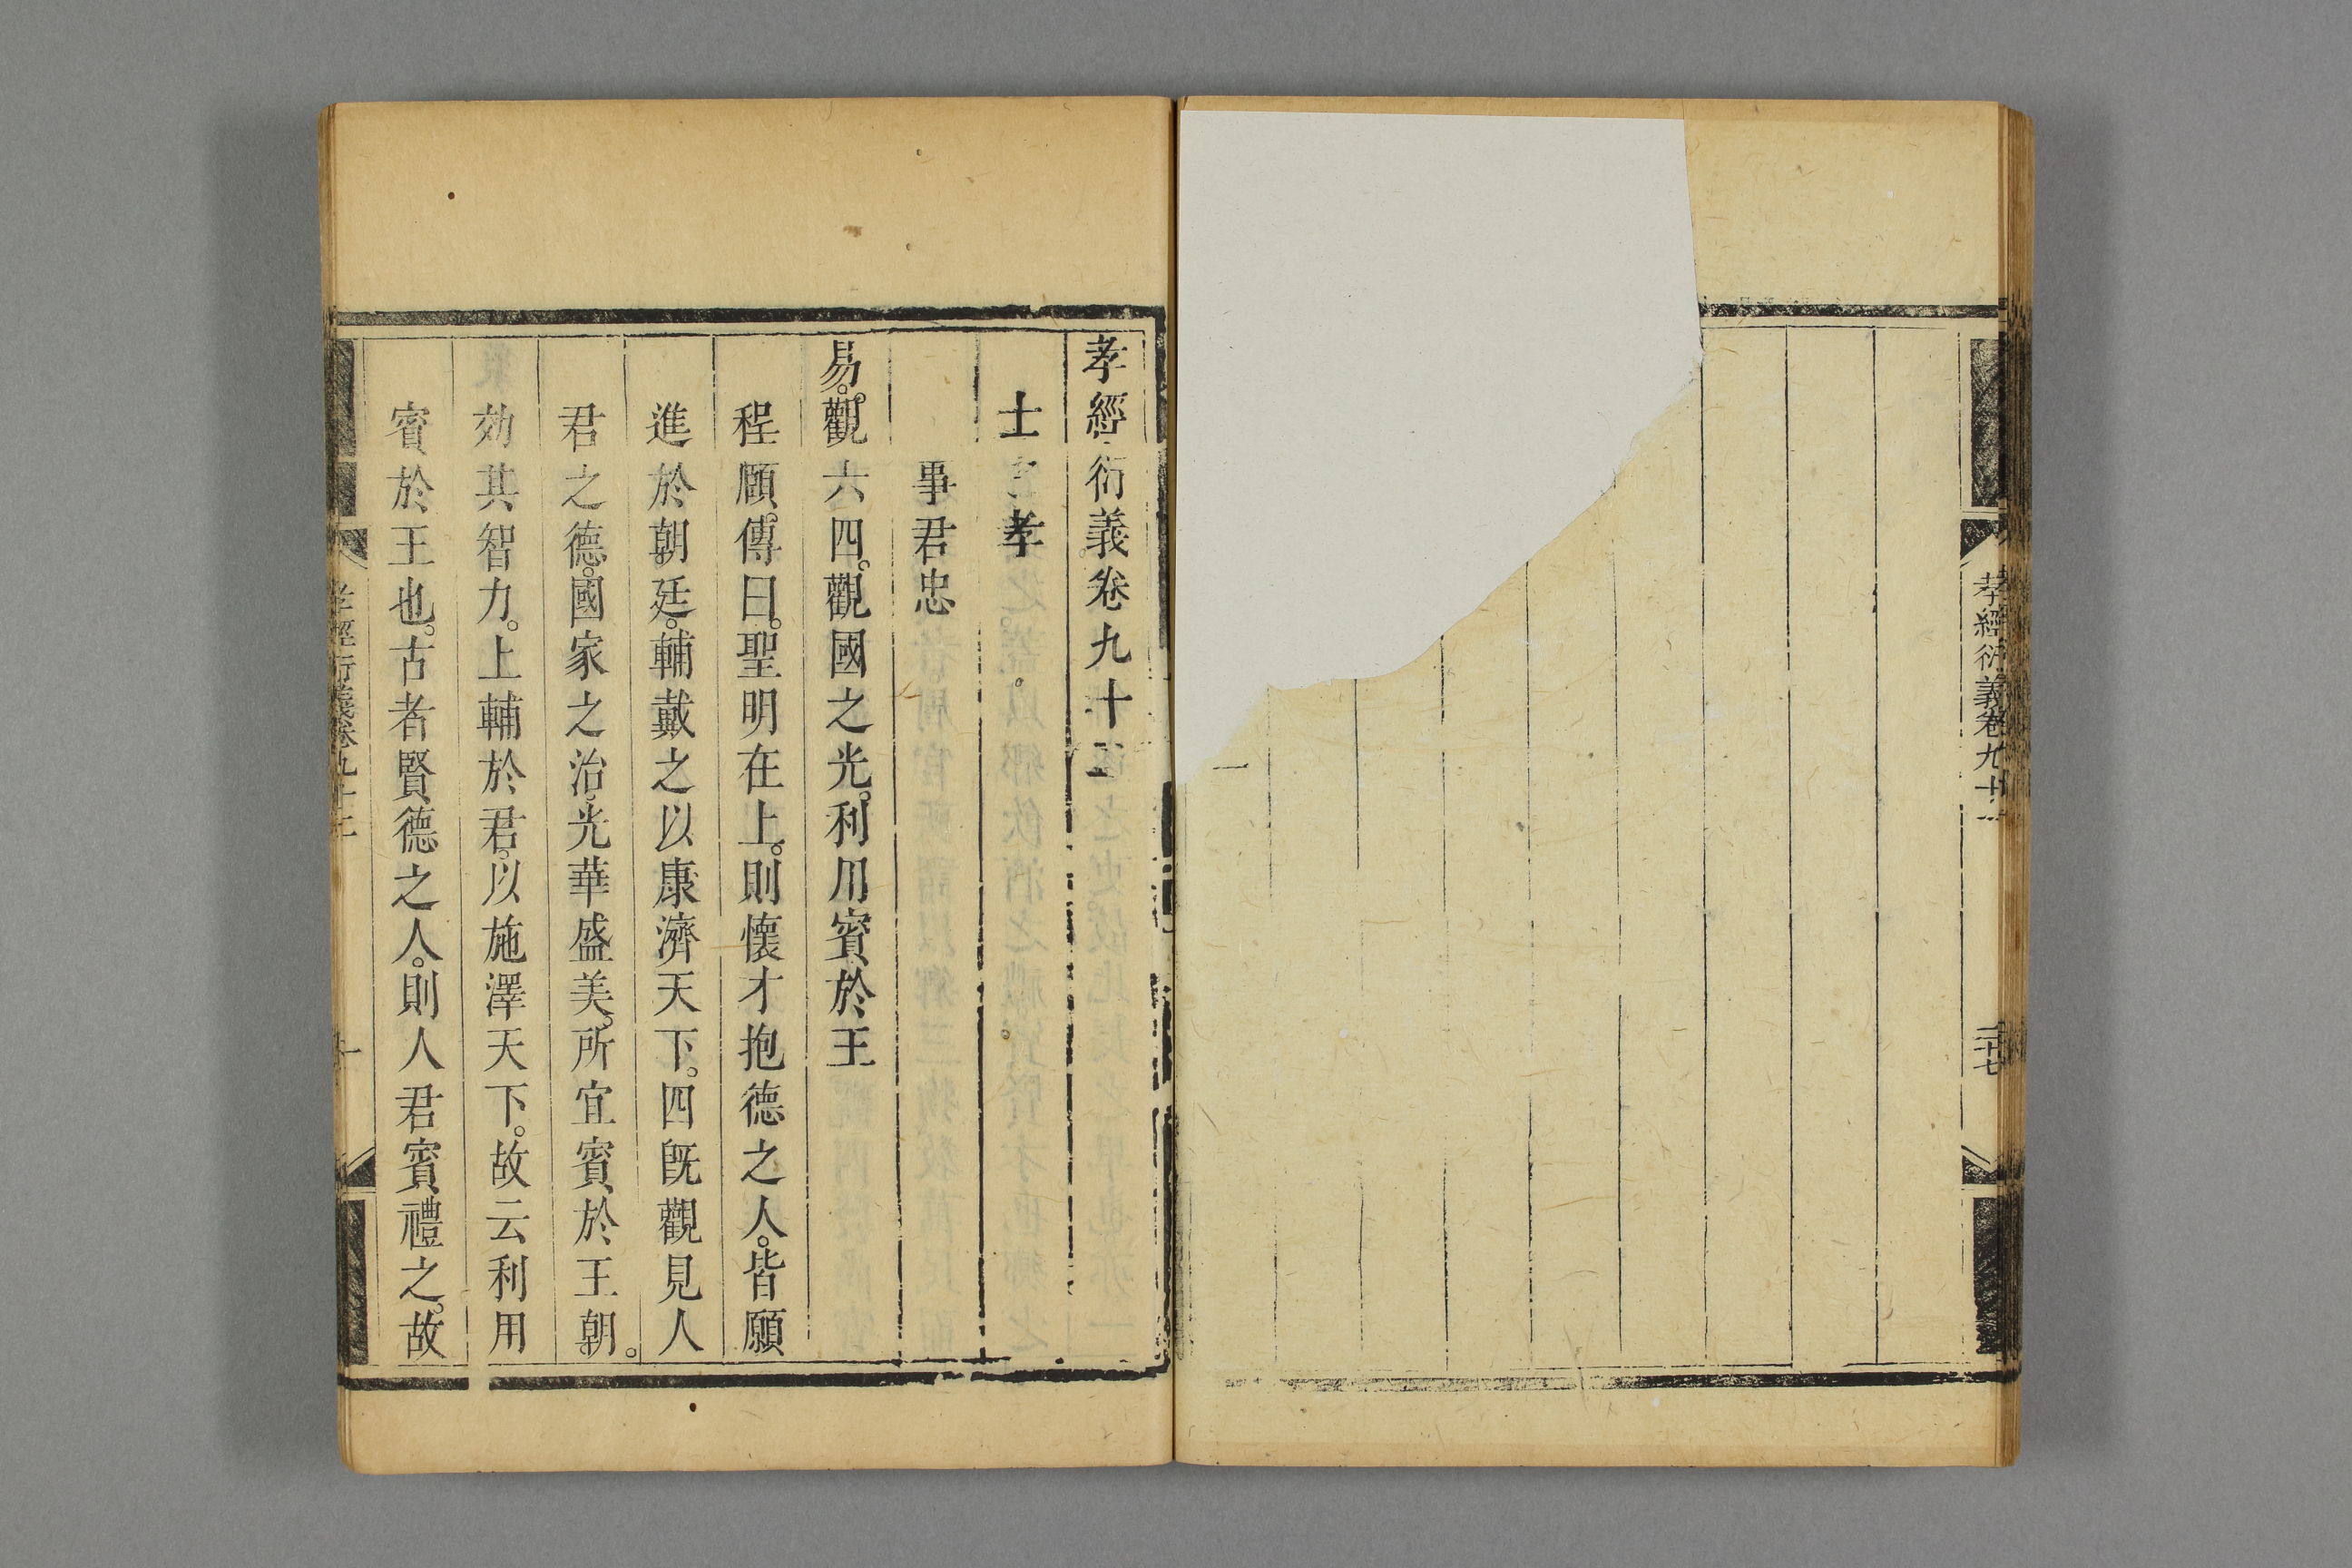 孝經衍義卷九十
二十七
孝經衍義卷九十二
士之孝
事君忠
易。觀。六四。觀國之光。利用賓於王
程頤。傳曰。聖明在上。則懷才抱德之人。皆願
進於朝廷。輔戴之以康濟天下。四旣觀見人
君之德。國家之治。光華盛美。所宜賓於王朝。
効其智力。上輔於君。以施澤天下。故云利用
賓於王也。古者賢德之人。則人君賓禮之。故
孝經衍義卷九十二
一